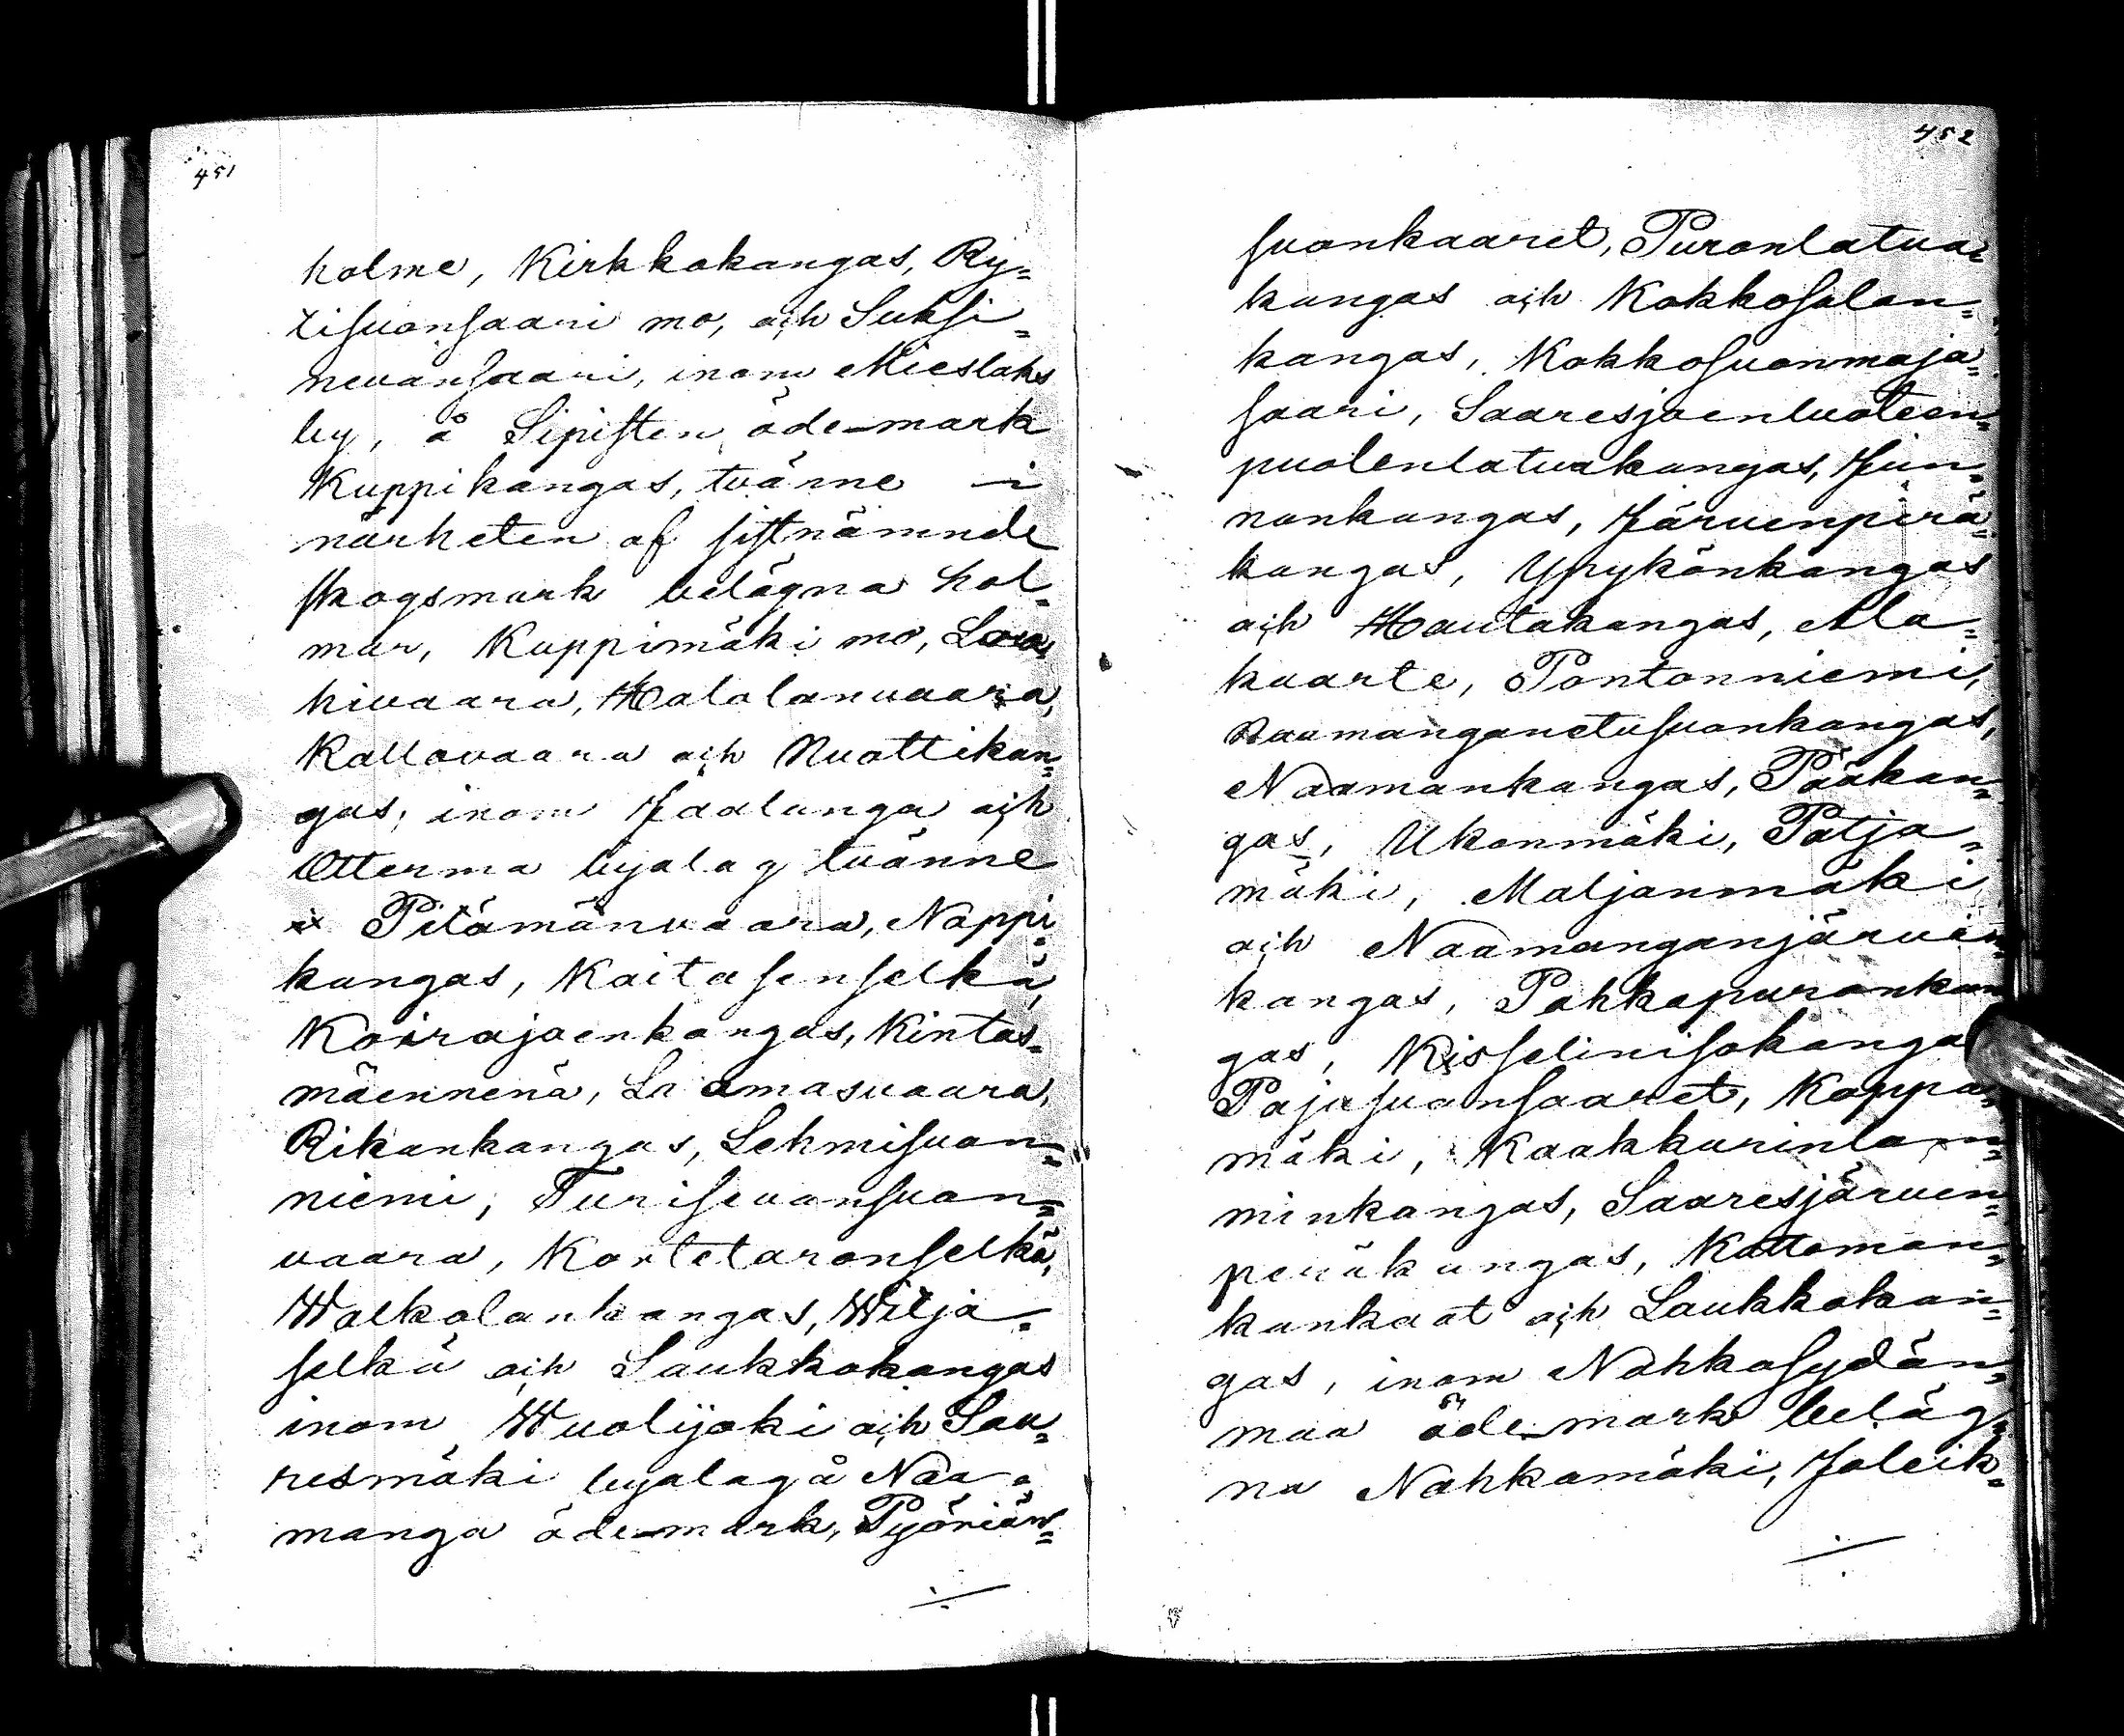 451
holme, Kirkkokangas, Ry=
tisuonsaari mo, och Suksi=
nevansaari, inom Mieslaks
by, å Sipisten ödemark
Kuppikangas, tvänne i
närheten af sistnämnde
skogsmark belägna hol=
mar, Kuppimäki mo, Lou=
hivaara, Halolanvaara,
Kallovaara och Nuottikan=
gas, inom Jaalanga och
Otterma byalag tvänne
Pitämänvaara, Nappi=
kangas, Kaitasenselkä,
Koirajoenkangas, Kintas=
mäennenä, Laamasvaara,
Rikankangas, Lehmisuon=
niemi, Turisevansuon=
vaara, Kortetaronselkä,
Walkolankangas, Wilja=
selkä och Laukkokangas
inom Wuolijoki och Saa=
resmäki byalag å Naa=
manga ödemark, Pyöriän=
452
suonkaaret, Puronlatva=
kangas och Kokkosalon=
kangas, Kokkosuonmaja=
saari, Saaresjoenluoteen=
puolenlatvakangas, Jun=
nonkangas, Järvenperä=
kangas, Ypykönkangas
och Hautakangas, Ala=
kaarte, Pontonniemi,
Naamanganetusuonkangas,
Naamankangas, Pääkan=
gas, Ukonmäki, Patja=
mäki, Maljanmäki
och Naamanganjärvin=
kangas, Pahkapuronkan
gas, Kisselinisokangas
Pajusuonsaaret, Koppa=
mäki, Kaakkurinlam=
minkangas, Saaresjärven=
peräkangas, Kattoman=
kankaat och Laukkokan=
gas, inom Nahkasydän=
maa ödemark beläg=
na Nahkamäki, Joleik=